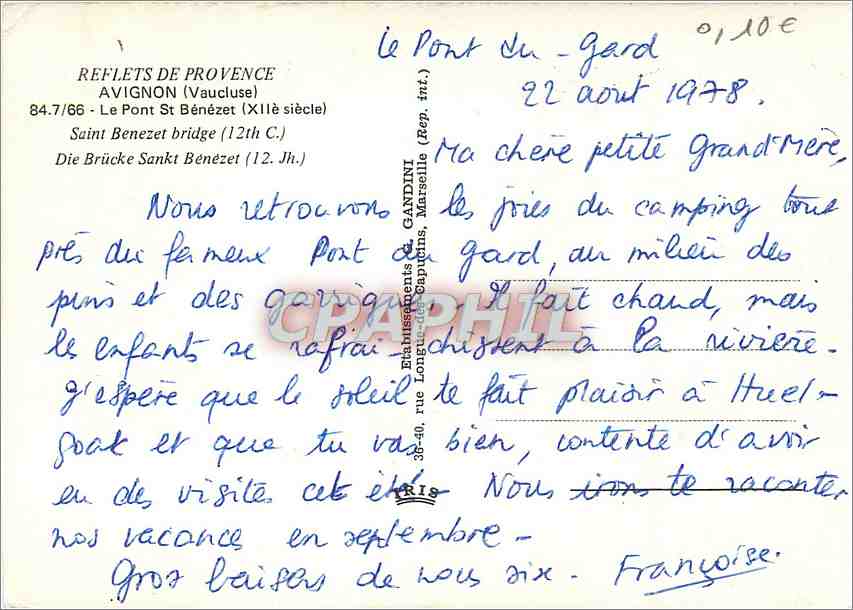 0,10€
REFLETS DE PROVENCE
AVIGNON (Vaucluse)
84.7/66 - Le Pont St Bénézet (XIIè siècle)
Saint Benezet bridge (12th C.)
Die Brücke Sankt Bénézet (12. Jh.)
Etablissements G. GANDINI
36-40, rue Longue-des-Capucins, Marseille (Rep. int.)
IRIS
CPAPHIL
le Pont du - Gard
22 aout 1978.
Ma chère petite Grand'Mère,
Nous retrouvons les joies du camping tout
près du fameux Pont du gard, au milieu des
pins et des garrigues. Il fait chaud, mais
les enfants se rafrai- chissent à la rivière.
J'espère que le soleil te fait plaisir à Huel-
goat et que tu vas bien, contente d'avoir
eu des visites cet été. Nous irons te raconter
nos vacances en septembre -
Gros baisers de nous six. Françoise.